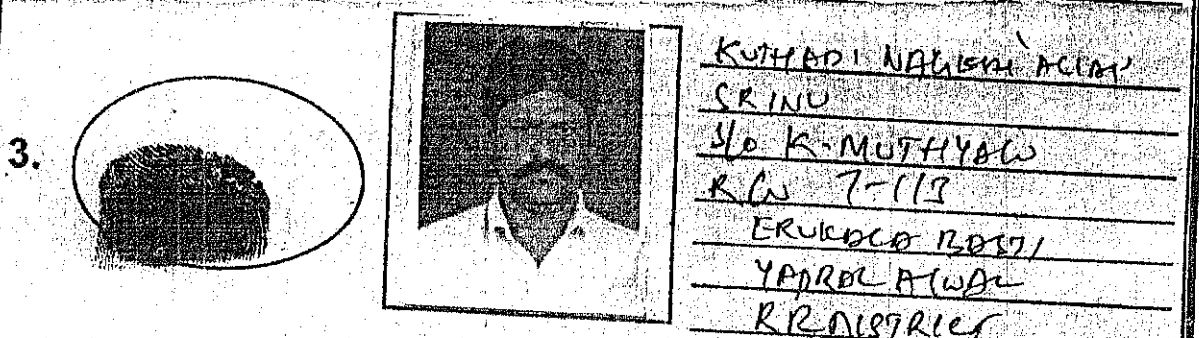 3.
KUTHADI NAGESH ALIAS
SRINU
S/o K. MUTHYALU
R/o 7-113
ERUKALA BASTI
YAPRAL ALWAL
R R DISTRICT